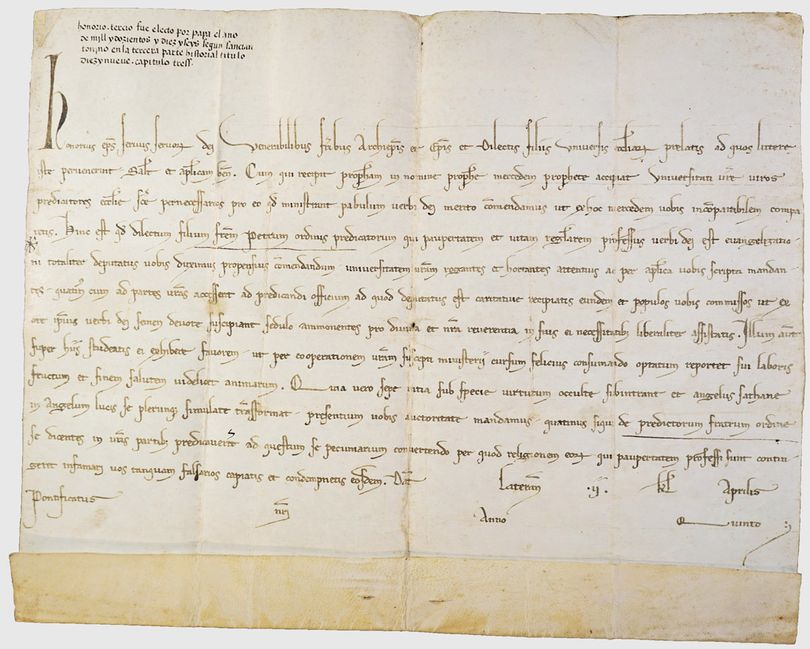 honorio. tercio fue electo por papa el ano
de mill y dozientos y diez y seys segun sanctan
tonino en la tercera parte historial titulo
diez y nueve. capitulo tress.
honorius eps seruus seruorum dei Venerabilibus fribus Archiepis et Epis et Dilectis filiis Vniuersis ecclarum prelatis ad quos littere
iste peruenerint. Salt et aplicam ben. Cum qui recipit propham in nomine prophe mercedem prophete accipiat Vniuersitati ure uiros
predicatores ecclie sce pernecessarios pro eo qd ministrant pabulum uerbi dei merito comendamus ut ex hoc mercedem uobis incoparabilem compa
retis. Hinc est qd dilectum filium frem Petrum ordinis predicatorum qui paupertatem et uitam reglarem professus uerbi dei est euangelizatio
ni totaliter deputatus uobis duximus propensius comendandum uniuersitatem uram rogantes et hortantes attentius ac per aplica uobis scripta mandan
tes. quatin cum ad partes uras accesserit ad predicandi officium ad quod deputatus est caritatiue recipiatis eundem et populos uobis commissos ut ex
ore ipsius uerbi dei semen deuote suscipiant sedulo ammonentes pro diuina et nra reuerentia in suis ei necessitatib liberaliter assistatis. Illum aut
super hiis studeatis ei exhibere fauorem. ut per cooperationem uram suscepti ministerii cursum felicius consumando optatum reportet sui laboris
fructum et finem salutem uidelicet animarum. Quia uero sepe uitia sub specie uirtutum occulte subintrant et angelus sathane
in Angelum lucis se plerunq simulate trasformat. presentium uobis auctoritate mandamus. quatinus siqui de predictorum fratrum ordine
se dicentes in uris partib predicauerint ad questum se pecuniarium conuertendo per quod religionem eorum qui paupertatem professi sunt contin
gerit infamari uos tanquam falsarios capiatis et condempnetis eosdem. Dat Lateran .ii. kl Aprilis
Pontificatus nri Anno Quinto